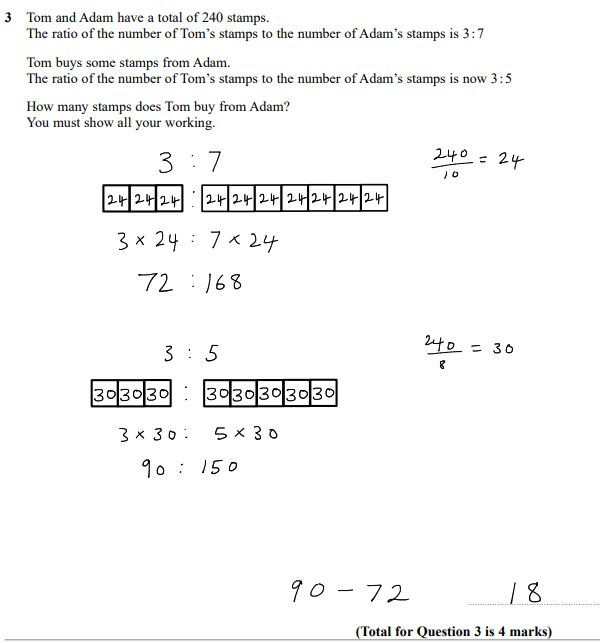 3 Tom and Adam have a total of 240 stamps.
The ratio of the number of Tom's stamps to the number of Adam's stamps is 3:7
Tom buys some stamps from Adam.
The ratio of the number of Tom's stamps to the number of Adam's stamps is now 3:5
How many stamps does Tom buy from Adam?
You must show all your working.
3 : 7
240/10 = 24
24 24 24 : 24 24 24 24 24 24 24
3 × 24 : 7 × 24
72 : 168
3 : 5
240/8 = 30
30 30 30 : 30 30 30 30 30
3 × 30 : 5 × 30
90 : 150
90 - 72 18
(Total for Question 3 is 4 marks)